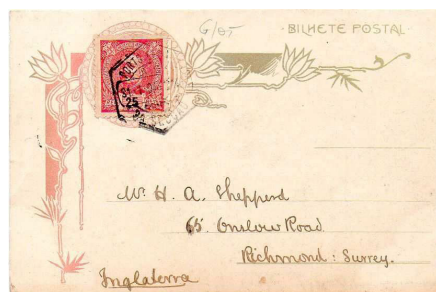 6/05
· BILHETE POSTAL ·
25
Mr. H. A. Shepperd
65 Onslow Road
Richmond : Surrey.
Inglaterra